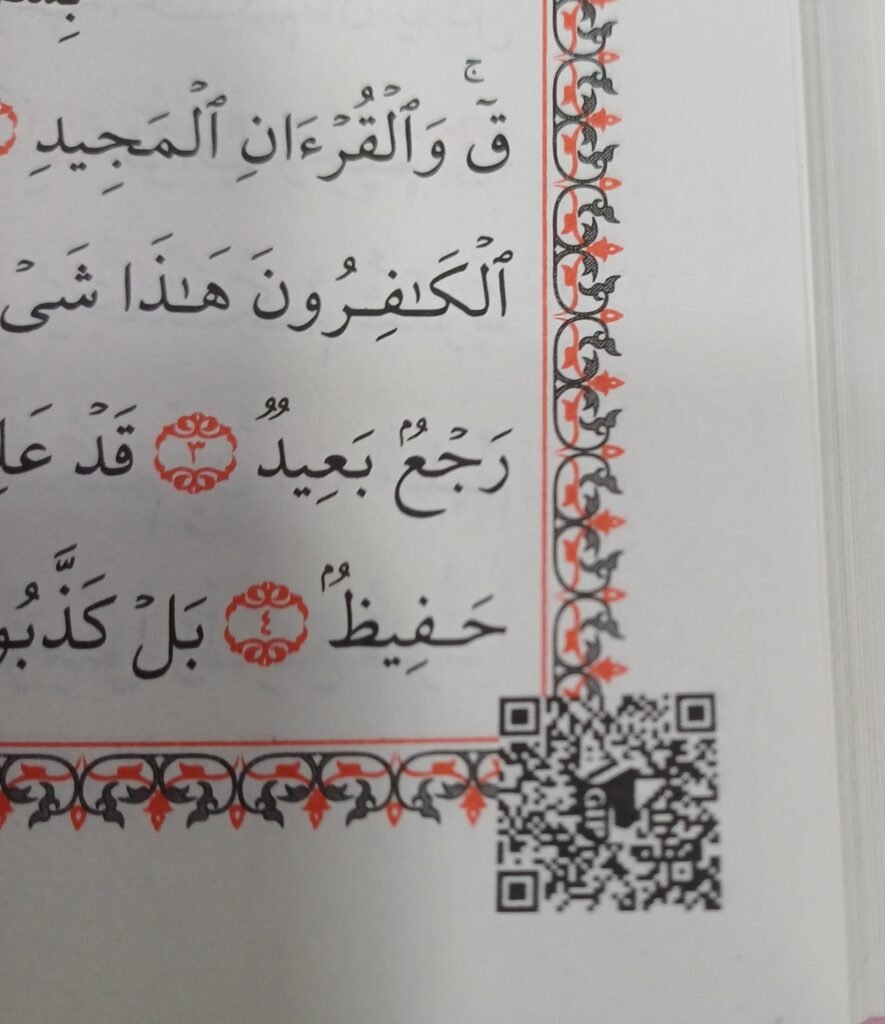 قٓ ۚ وَٱلْقُرْءَانِ ٱلْمَجِيدِ
ٱلْكَـٰفِرُونَ هَـٰذَا
رَجْعٌۢ بَعِيدٌ ٣ قَدْ
حَفِيظٌۢ ٤ بَلْ
GIP